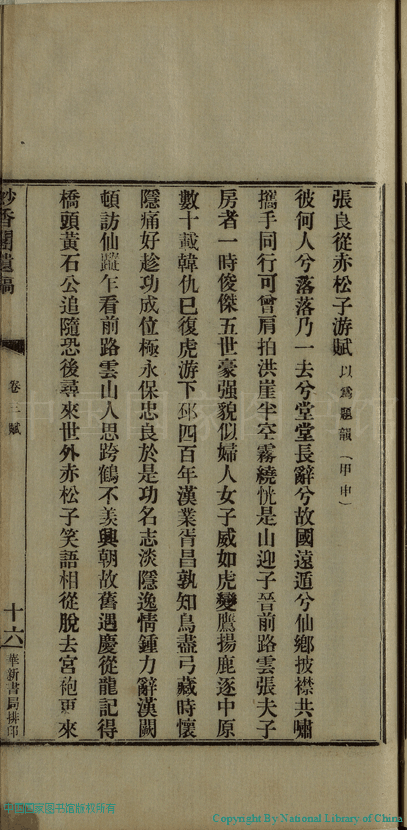 張良從赤松子游賦 以爲題韻（甲申）
彼何人兮落落乃一去兮堂堂長辭兮故國遠遁兮仙鄉披襟共嘯
攜手同行可曾肩拍洪崖半空霧繞恍是山迎子晉前路雲張夫子
房者一時俊傑五世豪强貌似婦人女子威如虎變鷹揚鹿逐中原
數十載韓仇已復虎游下邳四百年漢業胥昌孰知鳥盡弓藏時懷
隱痛好趁功成位極永保忠良於是功名志淡隱逸情鍾力辭漢闕
頓訪仙蹤乍看前路雲山人思跨鶴不羨興朝故舊遇慶從龍記得
橋頭黃石公追隨恐後尋來世外赤松子笑語相從脫去宮袍更來
妙香閣遺稿
卷三 賦
十六
華新書局排印
中国国家图书馆版权所有
Copyright By National Library of China